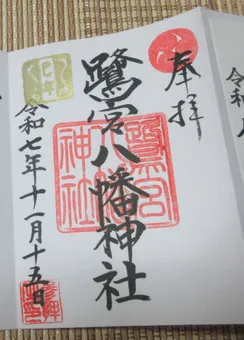 奉拝
鷺宮八幡神社
令和七年十一月十五日
巳年
鷺宮
八幡
神社